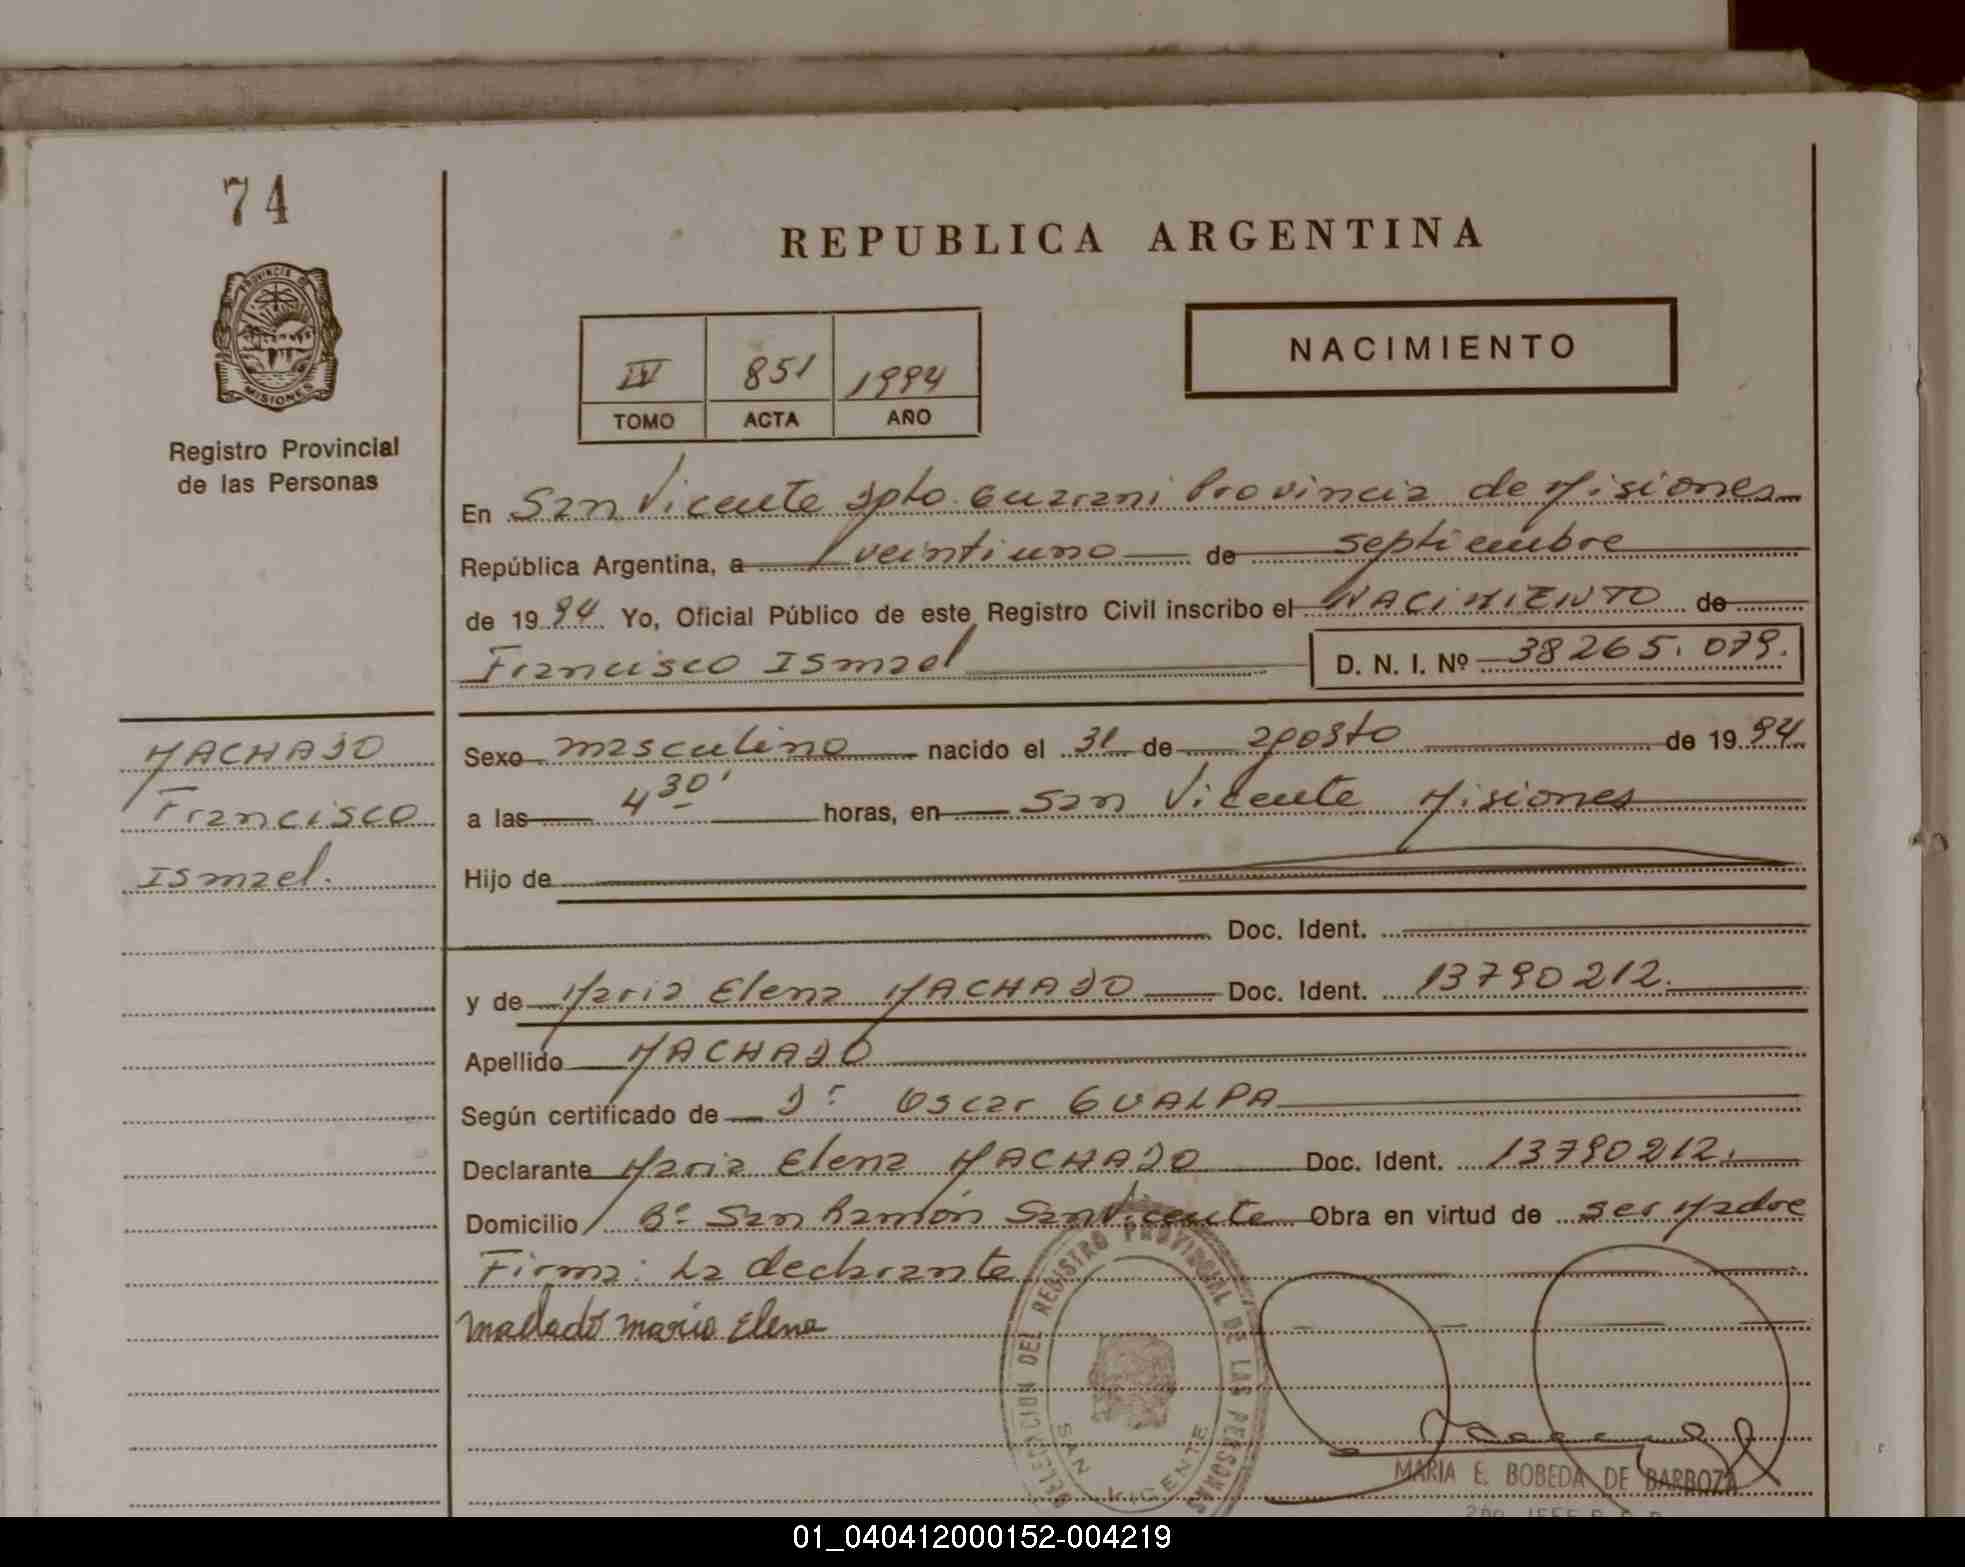 74
REPUBLICA ARGENTINA
PROVINCIA DE
MISIONES
Registro Provincial
de las Personas
IV 851 1994
TOMO ACTA AÑO
NACIMIENTO
En San Vicente Dpto. Guarani Provincia de Misiones
República Argentina, a veintiuno de septiembre
de 1994 Yo, Oficial Público de este Registro Civil inscribo el NACIMIENTO de
Francisco Ismael D. N. I. Nº 38265.079.
MACHADO
Francisco
Ismael.
Sexo masculino nacido el 31 de agosto de 1994
a las 4 30' horas, en San Vicente Misiones
Hijo de
Doc. Ident.
y de Maria Elena MACHADO Doc. Ident. 13790212.
Apellido MACHADO
Según certificado de Dr Oscar GUALPA
Declarante Maria Elena MACHADO Doc. Ident. 13790212.
Domicilio Bº San Ramón San Vicente Obra en virtud de ser Madre
Firma: La declarante
Machado Maria Elena
DELEGACION DEL REGISTRO PROVINCIAL DE LAS PERSONAS
SAN VICENTE
MARIA E. BOBEDA DE BARBOZA
01_040412000152-004219